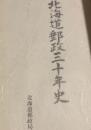 北海道郵政三十年史
北海道郵政局